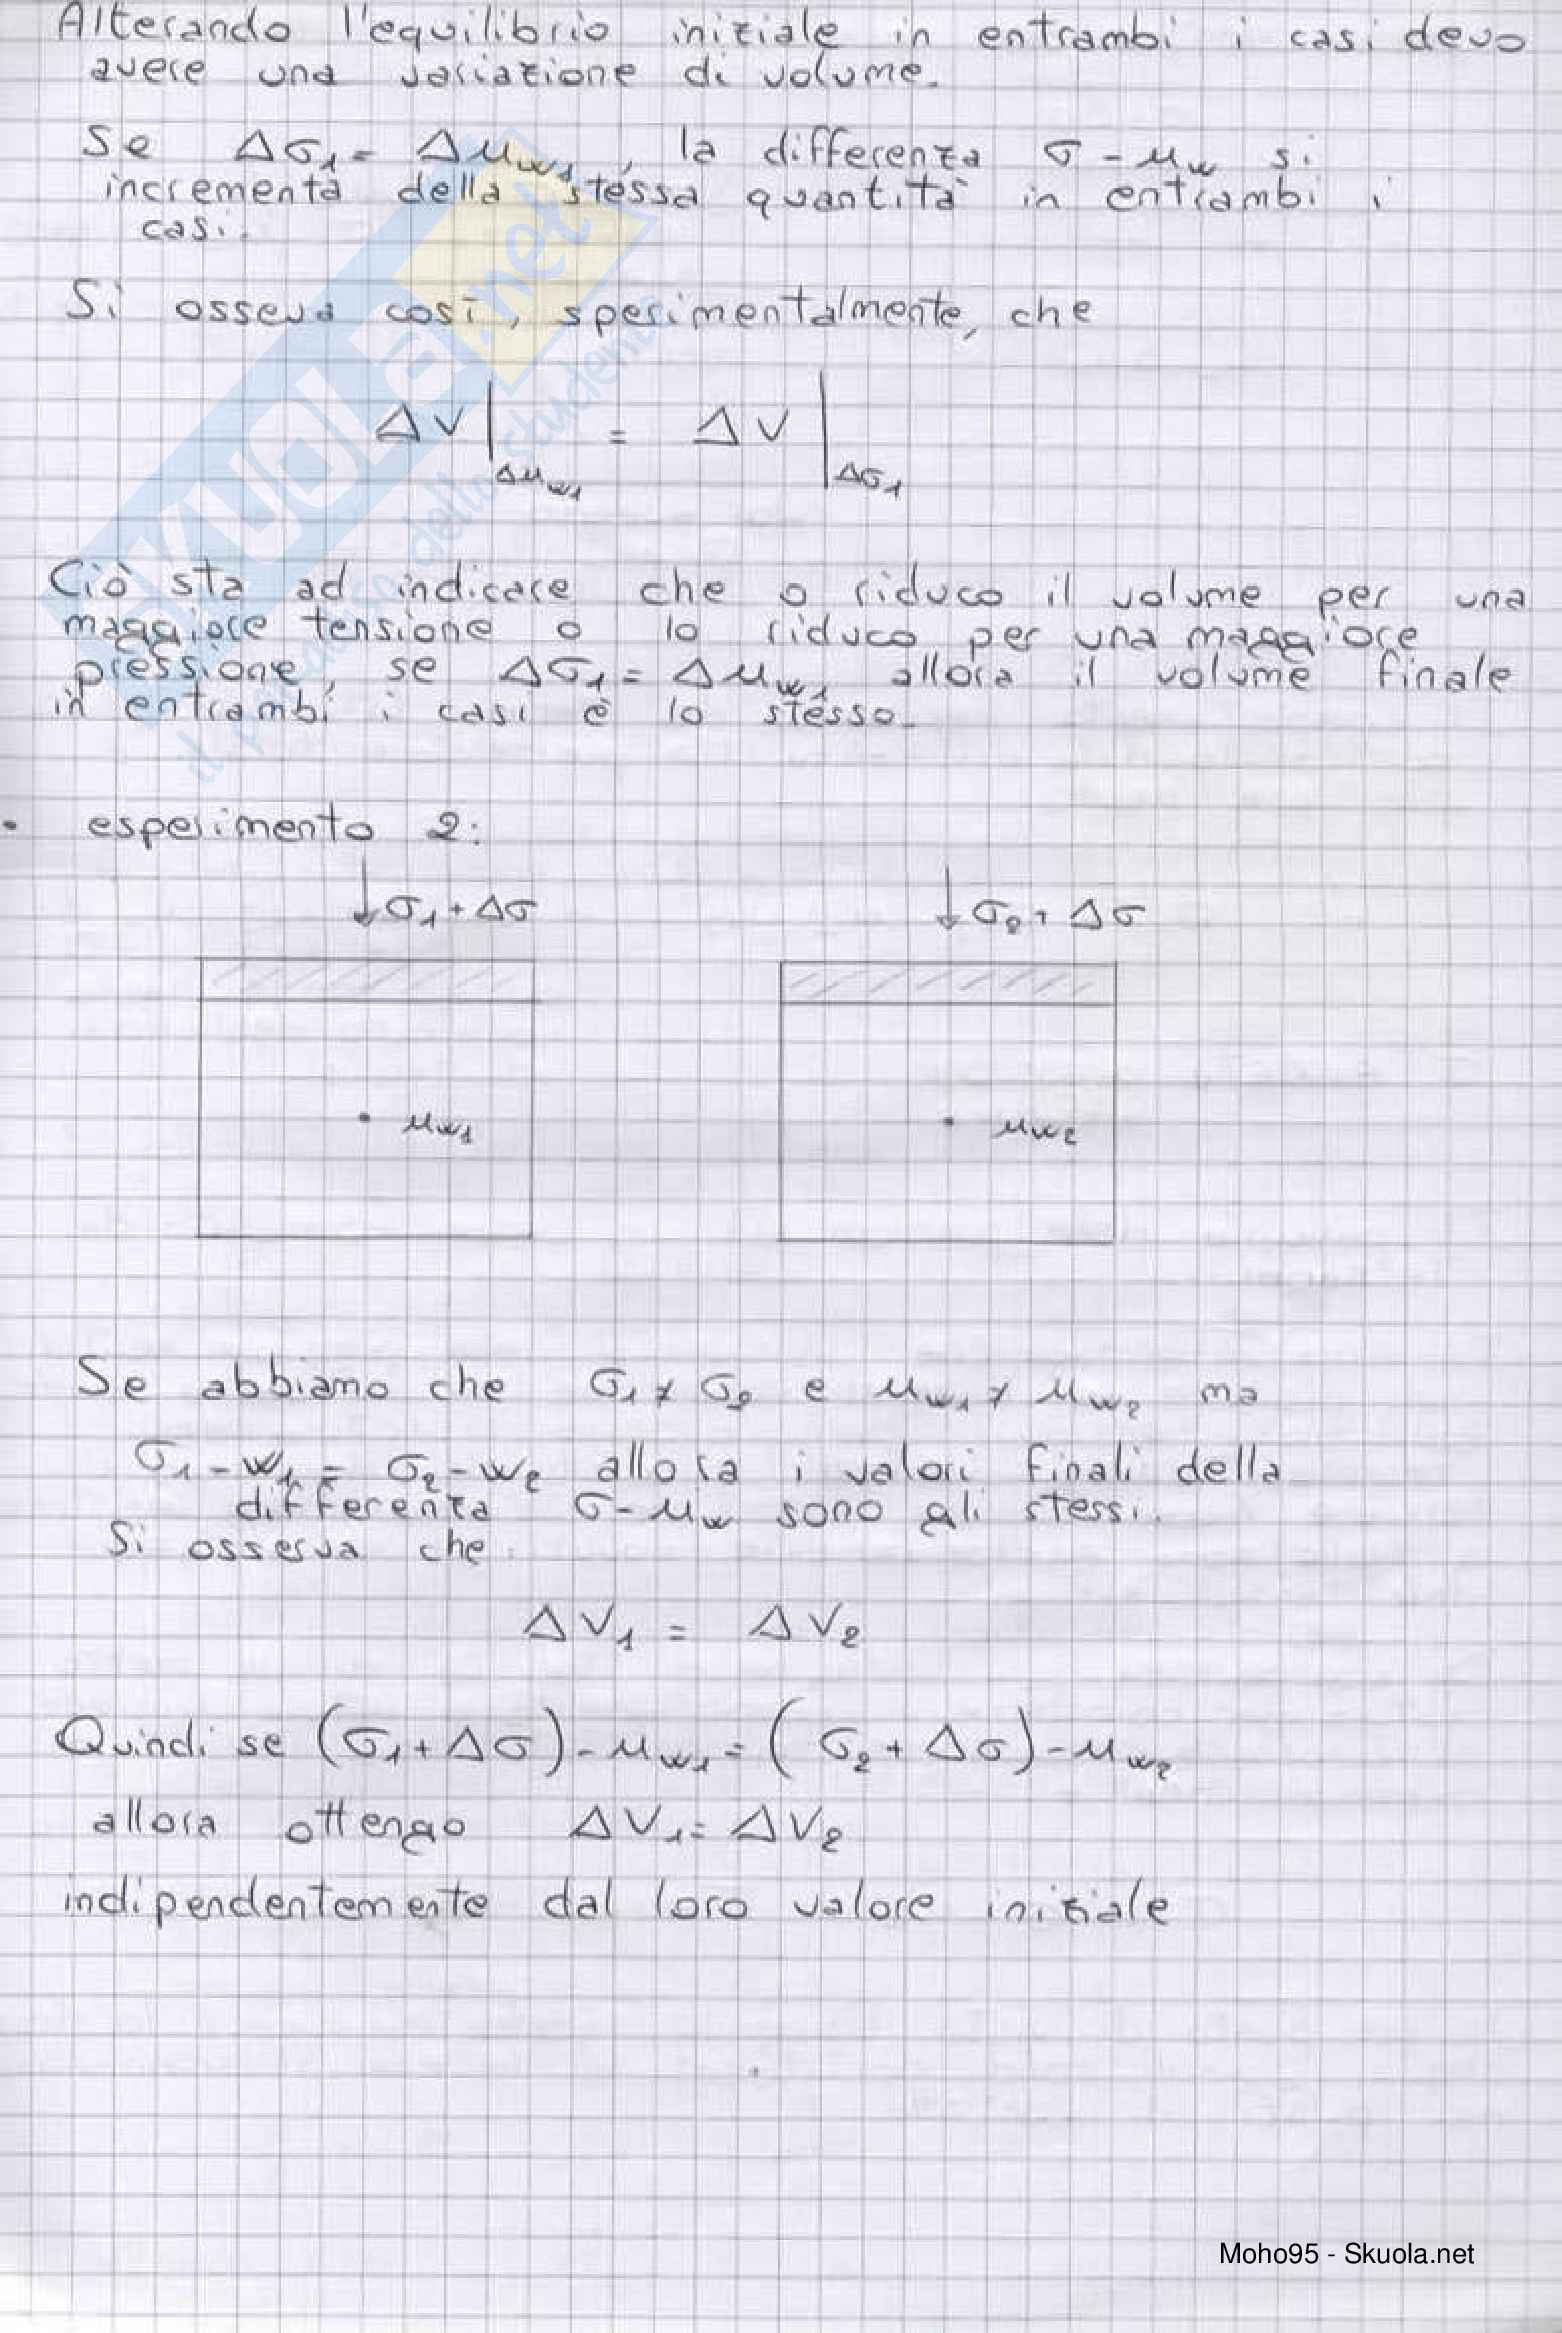 Alterando l'equilibrio iniziale in entrambi i casi devo
avere una variazione di volume.
Se Δσ₁ = Δμw₁, la differenza σ - μw si
incrementa della stessa quantità in entrambi i
casi.
Si osserva così, sperimentalmente, che
ΔV|Δμw₁ = ΔV|Δσ₁
Ciò sta ad indicare che o riduco il volume per una
maggiore tensione o lo riduco per una maggiore
pressione, se Δσ₁ = Δμw₁ allora il volume finale
in entrambi i casi è lo stesso.
• esperimento 2:
↓σ₁ + Δσ ↓σ₂ + Δσ
• μw₁ • μw₂
Se abbiamo che σ₁ ≠ σ₂ e μw₁ ≠ μw₂ ma
σ₁ - w₁ = σ₂ - w₂ allora i valori finali della
differenza σ - μw sono gli stessi.
Si osserva che
ΔV₁ = ΔV₂
Quindi se (σ₁ + Δσ) - μw₁ = (σ₂ + Δσ) - μw₂
allora ottengo ΔV₁ = ΔV₂
indipendentemente dal loro valore iniziale
Moho95 - Skuola.net
SKUOLA.net
il paradiso dello studente